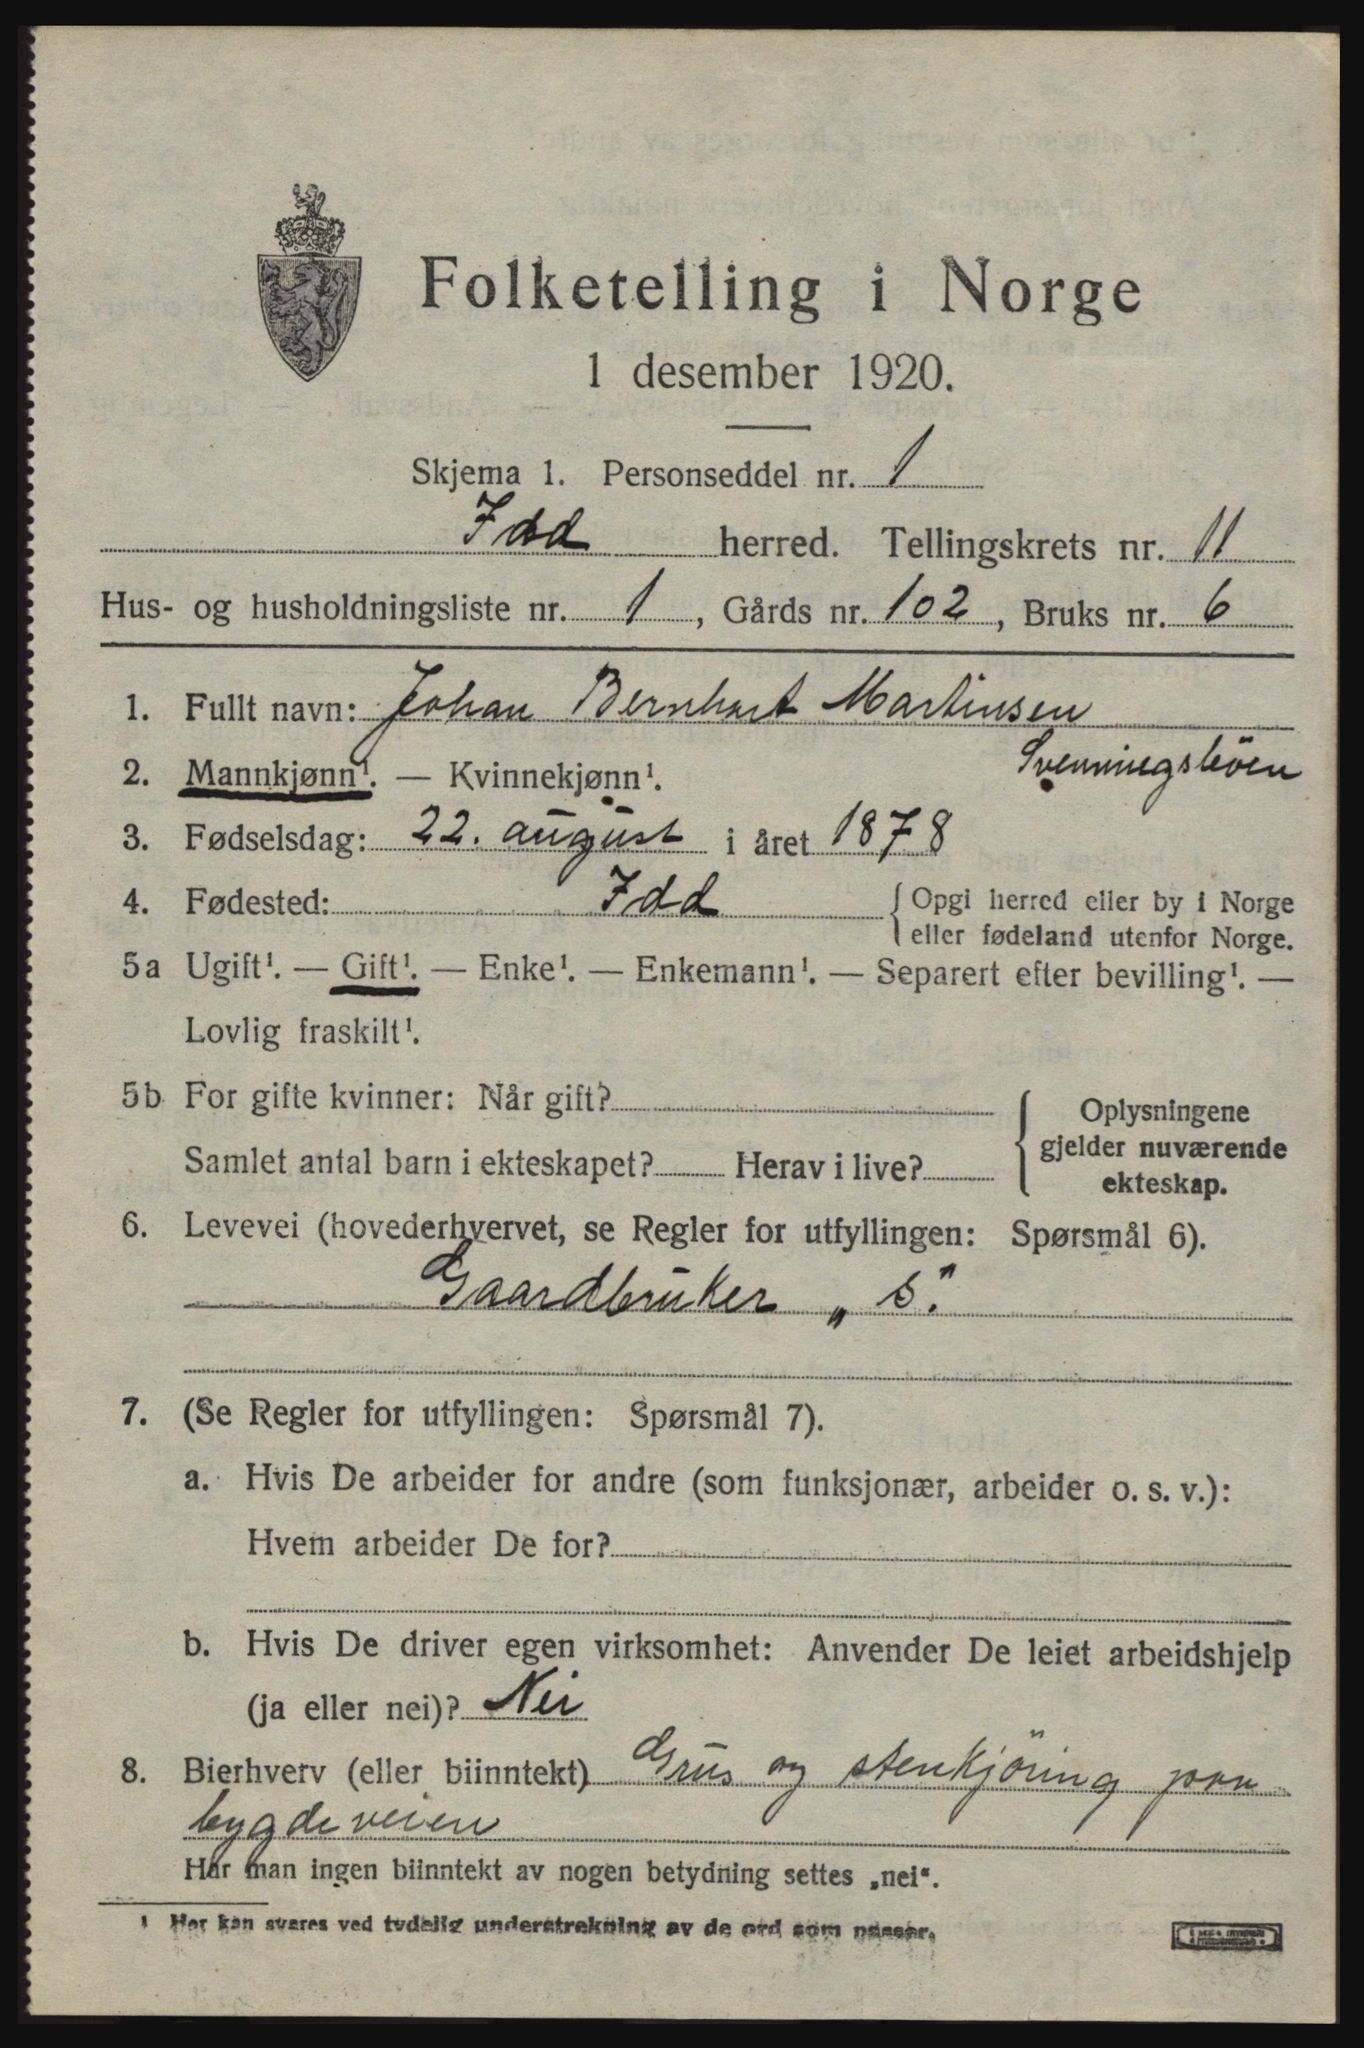 Folketelling i Norge
1 desember 1920.
Skjema 1. Personseddel nr. 1
Idd herred. Tellingskrets nr. 11
Hus- og husholdningsliste nr. 1, Gårds nr. 102, Bruks nr. 6
1. Fullt navn: Johan Bernhart Martinsen
Svenningsböen
2. Mannkjønn¹. — Kvinnekjønn¹.
3. Fødselsdag: 22. august i året 1878
4. Fødested: Idd { Opgi herred eller by i Norge
eller fødeland utenfor Norge.
5a Ugift¹. — Gift¹. — Enke¹. — Enkemann¹. — Separert efter bevilling¹. —
Lovlig fraskilt¹.
5b For gifte kvinner: Når gift?
Samlet antal barn i ekteskapet? Herav i live?
Oplysningene
gjelder nuværende
ekteskap.
6. Levevei (hovederhvervet, se Regler for utfyllingen: Spørsmål 6).
Gaardbruker „ S."
7. (Se Regler for utfyllingen: Spørsmål 7).
a. Hvis De arbeider for andre (som funksjonær, arbeider o. s. v.):
Hvem arbeider De for?
b. Hvis De driver egen virksomhet: Anvender De leiet arbeidshjelp
(ja eller nei)? Nei
8. Bierhverv (eller biinntekt) Grus og stenkjöring paa
bygdeveien
Har man ingen biinntekt av nogen betydning settes „nei“.
¹ Her kan svares ved tydelig understrekning av de ord som passer.